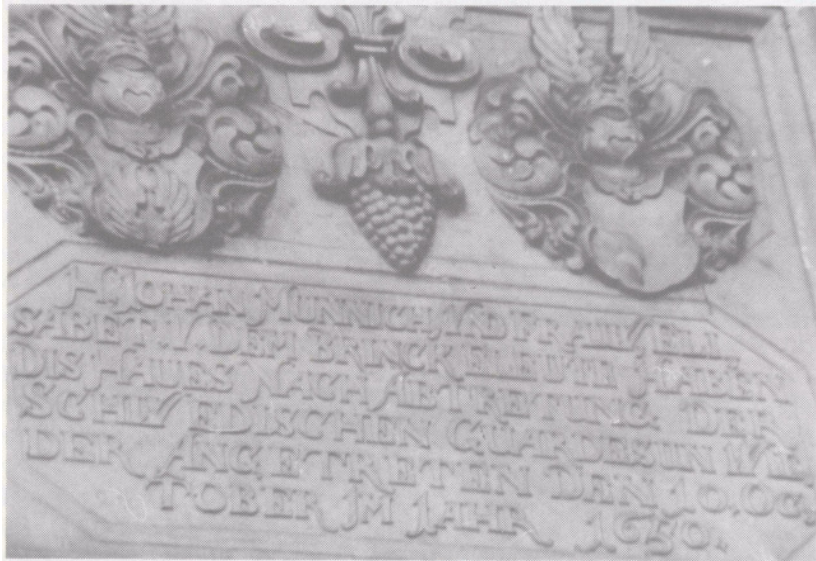 H. JOHAN MÜNNICH VND FRAVW ELI
SABET. V. DEM BRINCK ELEWTE HABEN
DIS HAUES NACH ABTRETUNG DER
SCHWEDISCHEN GUARDESUN WIE
DER ANGETRETEN DAN 10. OC,
TOBER IM JAHR 1650.